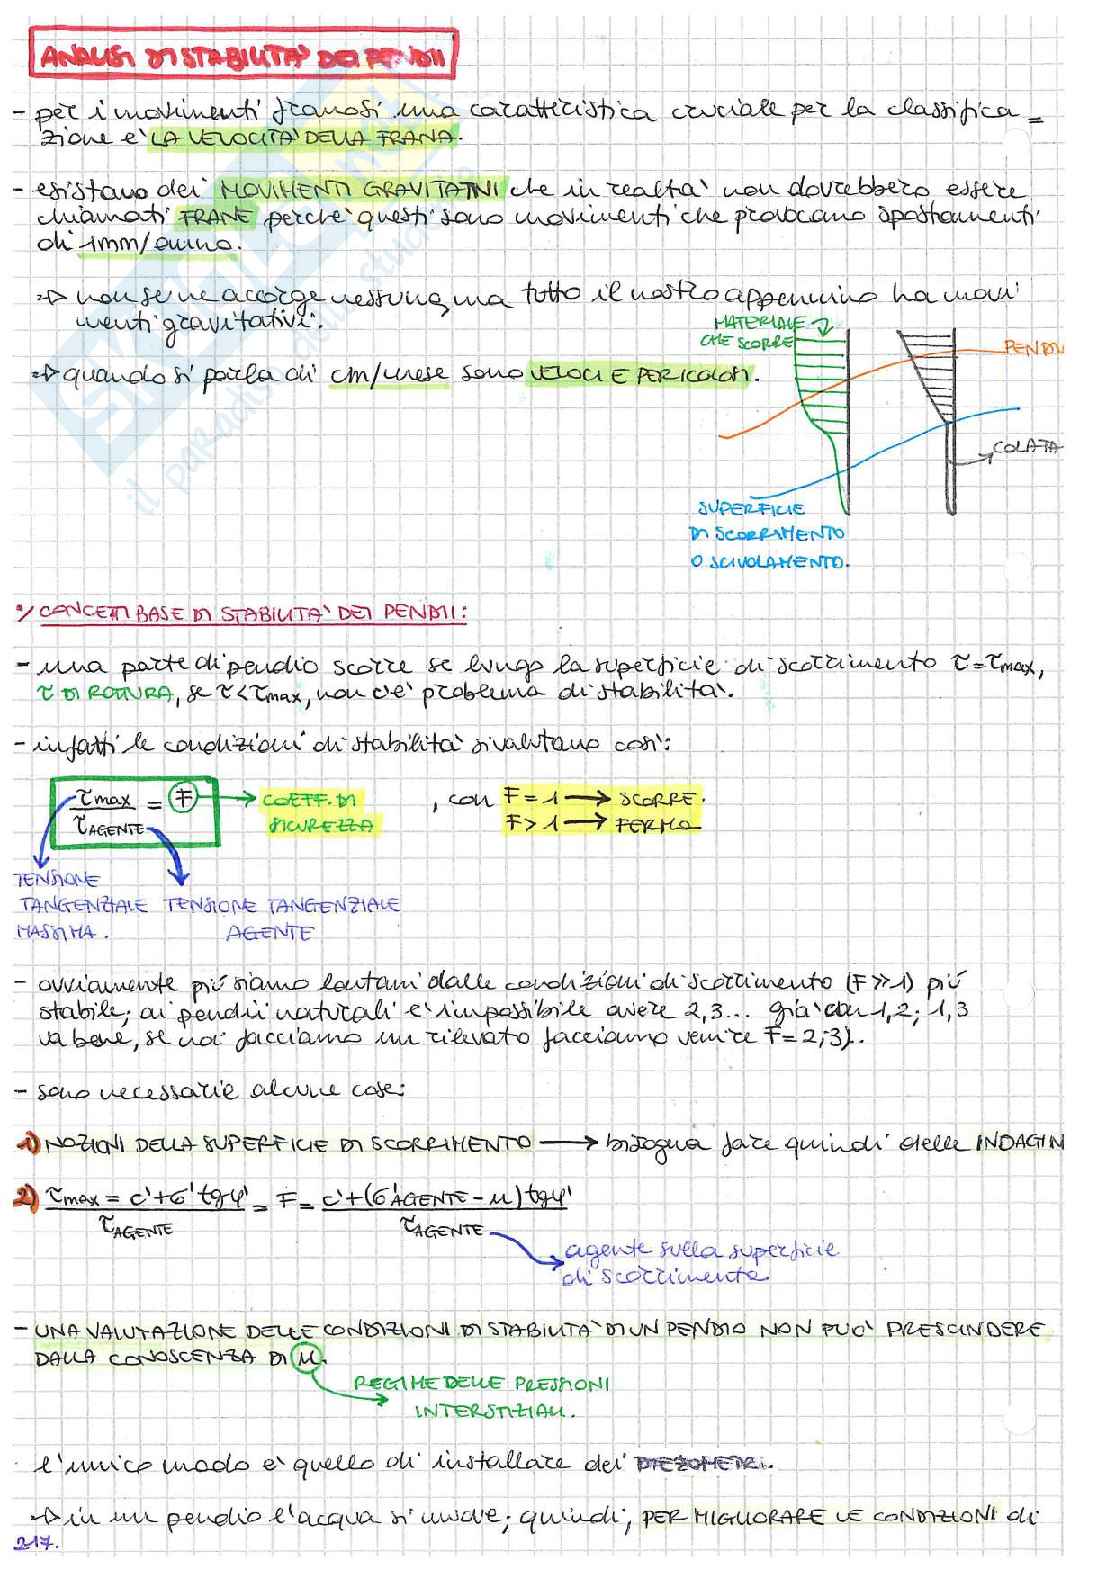 ANALISI DI STABILITA' DEI PENDII
- per i movimenti franosi una caratteristica cruciale per la classifica=
zione e' LA VELOCITA' DELLA FRANA.
- esistono dei MOVIMENTI GRAVITATIVI che in realta' non dovrebbero essere
chiamati FRANE perche' questi sono movimenti che provocano spostamenti
di 1mm/anno.
→ non se ne accorge nessuno, ma tutto il nostro appennino ha movi
menti gravitativi.
→ quando si parla di cm/mese sono VELOCI E PERICOLOSI.
MATERIALE
CHE SCORRE
PENDII
COLATA
SUPERFICIE
DI SCORRIMENTO
O SCIVOLAMENTO.
CONCETTI BASE DI STABILITA' DEI PENDII:
- una parte di pendio scorre se lungo la superficie di scorrimento τ=τmax,
τ DI ROTTURA, se τ<τmax, non c'e' problema di stabilita'.
- infatti le condizioni di stabilita' si valutano cosi':
τmax / τAGENTE = F → COEFF. DI SICUREZZA , con F = 1 → SCORRE.
F > 1 → FERMO
TENSIONE
TANGENZIALE
MASSIMA.
TENSIONE TANGENZIALE
AGENTE
- ovviamente più siamo lontani dalle condizioni di scorrimento (F≫1) più
stabile; ai pendii naturali e' impossibile avere 2,3... già con 1,2; 1,3
va bene, se noi facciamo un rilevato facciamo venire F= 2; 3).
- sono necessarie alcune cose:
1) NOZIONI DELLA SUPERFICIE DI SCORRIMENTO → bisogna fare quindi delle INDAGIN
2) τmax = c'+σ' tgφ' / τAGENTE = F = c'+(σ'AGENTE - u) tgφ' / τAGENTE
agente sulla superficie
di scorrimento
- UNA VALUTAZIONE DELLE CONDIZIONI DI STABILITA' DI UN PENDIO NON PUO' PRESCINDERE
DALLA CONOSCENZA DI u.
REGIME DELLE PRESSIONI
INTERSTIZIALI.
l'unico modo e' quello di installare dei PIEZOMETRI.
→ in un pendio l'acqua si muove; quindi, PER MIGLIORARE LE CONDIZIONI di
217.